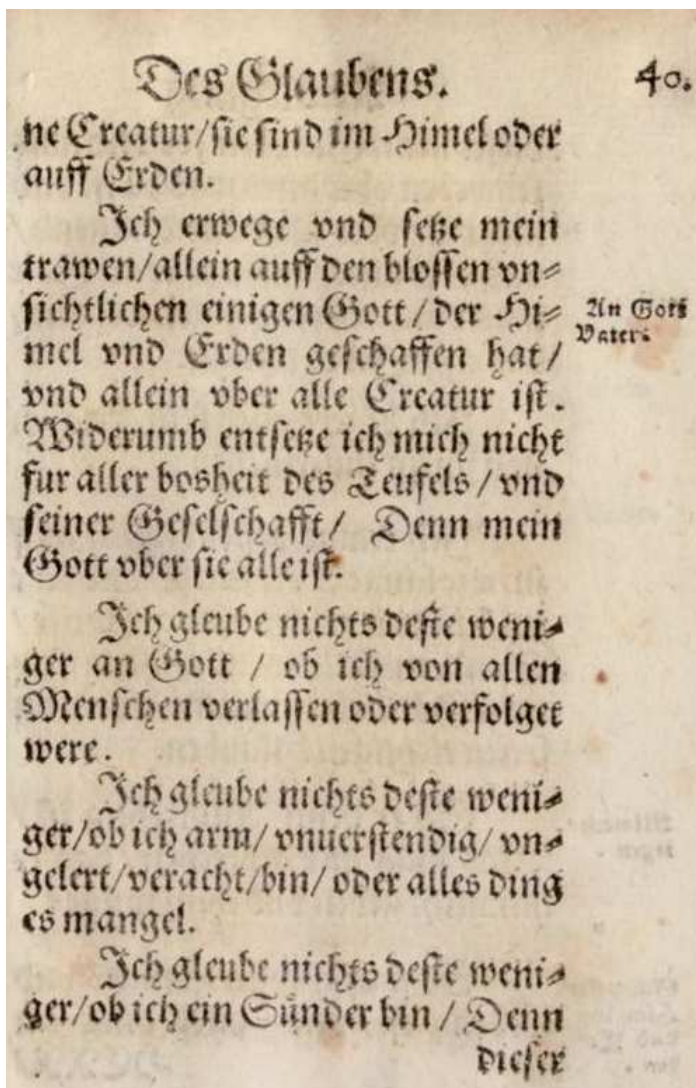 Des Glaubens. 40.
ne Creatur/sie sind im Himel oder
auff Erden.
Jch erwege vnd setze mein
trawen/allein auff den blossen vn=
sichtlichen einigen Gott/der Hi=
mel vnd Erden geschaffen hat/
vnd allein vber alle Creatur ist.
Widerumb entsetze ich mich nicht
fur aller bosheit des Teufels/vnd
seiner Geselschafft/ Denn mein
Gott vber sie alle ist.
Jch gleube nichts deste weni=
ger an Gott / ob ich von allen
Menschen verlassen oder verfolget
were.
Jch gleube nichts deste weni=
ger/ob ich arm/vnuerstendig/vn=
gelert/veracht/bin/oder alles ding
es mangel.
Jch gleube nichts deste weni=
ger/ob ich ein Sünder bin/Denn
dieser
An Gott
Vater.